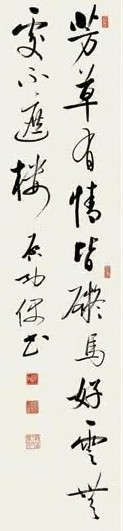 芳草有情皆礙馬好雲無
處不遮樓 启功偶書